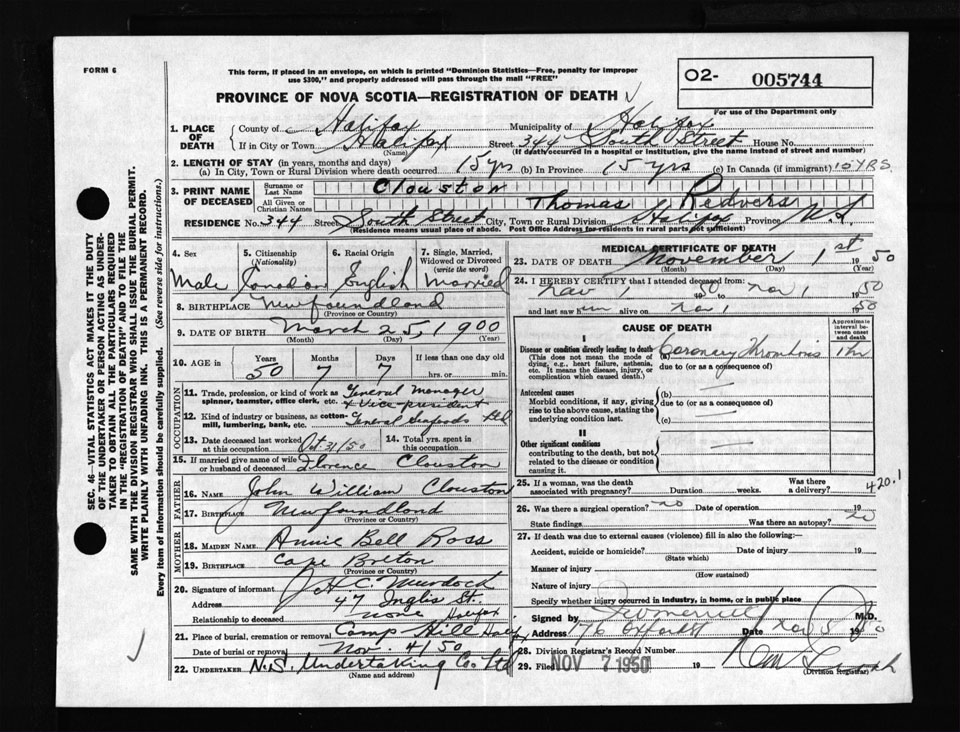 FORM 6
This form, if placed in an envelope, on which is printed "Dominion Statistics—Free, penalty for improper
use $300," and properly addressed will pass through the mail "FREE"
O2- 005744
For use of the Department only
PROVINCE OF NOVA SCOTIA—REGISTRATION OF DEATH
1. PLACE OF DEATH
County of Halifax Municipality of Halifax
If in City or Town Halifax (Name) Street 344 South Street House No.
(If death occurred in a hospital or institution, give the name instead of street and number)
2. LENGTH OF STAY (in years, months and days)
(a) In City, Town or Rural Division where death occurred 15 yrs (b) In Province 15 yrs (c) In Canada (if immigrant) 15 YRS.
3. PRINT NAME OF DECEASED
Surname or Last Name Clouston
All Given or Christian Names Thomas Redvers
RESIDENCE No. 344 Street South Street City, Town or Rural Division Halifax Province N.S.
(Residence means usual place of abode. Post Office Address for residents in rural parts not sufficient)
4. Sex Male
5. Citizenship (Nationality) Canadian
6. Racial Origin English
7. Single, Married, Widowed or Divorced (write the word) Married
8. BIRTHPLACE Newfoundland
(Province or Country)
9. DATE OF BIRTH March 25, 1900
(Month) (Day) (Year)
10. AGE in Years 50 Months 7 Days 7 If less than one day old
hrs. or min.
OCCUPATION
11. Trade, profession, or kind of work as spinner, teamster, office clerk, etc. General manager
+ Vice president
12. Kind of industry or business, as cotton-mill, lumbering, bank, etc. General Seafoods Ltd
13. Date deceased last worked at this occupation Oct 31/50
14. Total yrs. spent in this occupation
15. If married give name of wife or husband of deceased Florence Clouston
FATHER
16. Name John William Clouston
17. Birthplace Newfoundland
(Province or Country)
MOTHER
18. MAIDEN NAME Annie Bell Ross
19. BIRTHPLACE Cape Breton
(Province or Country)
20. Signature of informant H.C. Murdock
Address 47 Inglis St.
Relationship to deceased none Halifax
21. Place of burial, cremation or removal Camp Hill Halifax
Date of burial or removal Nov. 4/50
22. UNDERTAKER N.S. Undertaking Co Ltd
(Name and address)
MEDICAL CERTIFICATE OF DEATH
23. DATE OF DEATH November 1st 1950
(Month) (Day) (Year)
24. I HEREBY CERTIFY that I attended deceased from
Nov 1 1950 to Nov 1 1950
and last saw him alive on Nov 1 1950
CAUSE OF DEATH
Approximate interval between onset and death
I
Disease or condition directly leading to death (a) Coronary Thrombosis 1 hr
(This does not mean the mode of dying, e.g., heart failure, asthenia, etc. It means the disease, injury, or complication which caused death.)
due to (or as a consequence of)
Antecedent causes
Morbid conditions, if any, giving rise to the above cause, stating the underlying condition last.
(b) —
due to (or as a consequence of)
(c) —
II
Other significant conditions
contributing to the death, but not related to the disease or condition causing it. —
420.1
25. If a woman, was the death associated with pregnancy? Duration weeks. Was there a delivery?
26. Was there a surgical operation? no Date of operation 19
State findings Was there an autopsy? no
27. If death was due to external causes (violence) fill in also the following:—
Accident, suicide or homicide? Date of injury 19
(State which)
Manner of injury
(How sustained)
Nature of injury
Specify whether injury occurred in industry, in home, or in public place
Signed by M.D.
Address 76 Date Nov 5 1950
28. Division Registrar's Record Number
29. Filed NOV 7 1950 19
(Division Registrar)
SEC. 46—VITAL STATISTICS ACT MAKES IT THE DUTY
OF THE UNDERTAKER OR PERSON ACTING AS UNDER-
TAKER TO OBTAIN ALL THE PARTICULARS REQUIRED
IN THE "REGISTRATION OF DEATH" AND TO FILE THE
SAME WITH THE DIVISION REGISTRAR WHO SHALL ISSUE THE BURIAL PERMIT.
WRITE PLAINLY WITH UNFADING INK. THIS IS A PERMANENT RECORD.
Every item of information should be carefully supplied. (See reverse side for instructions.)